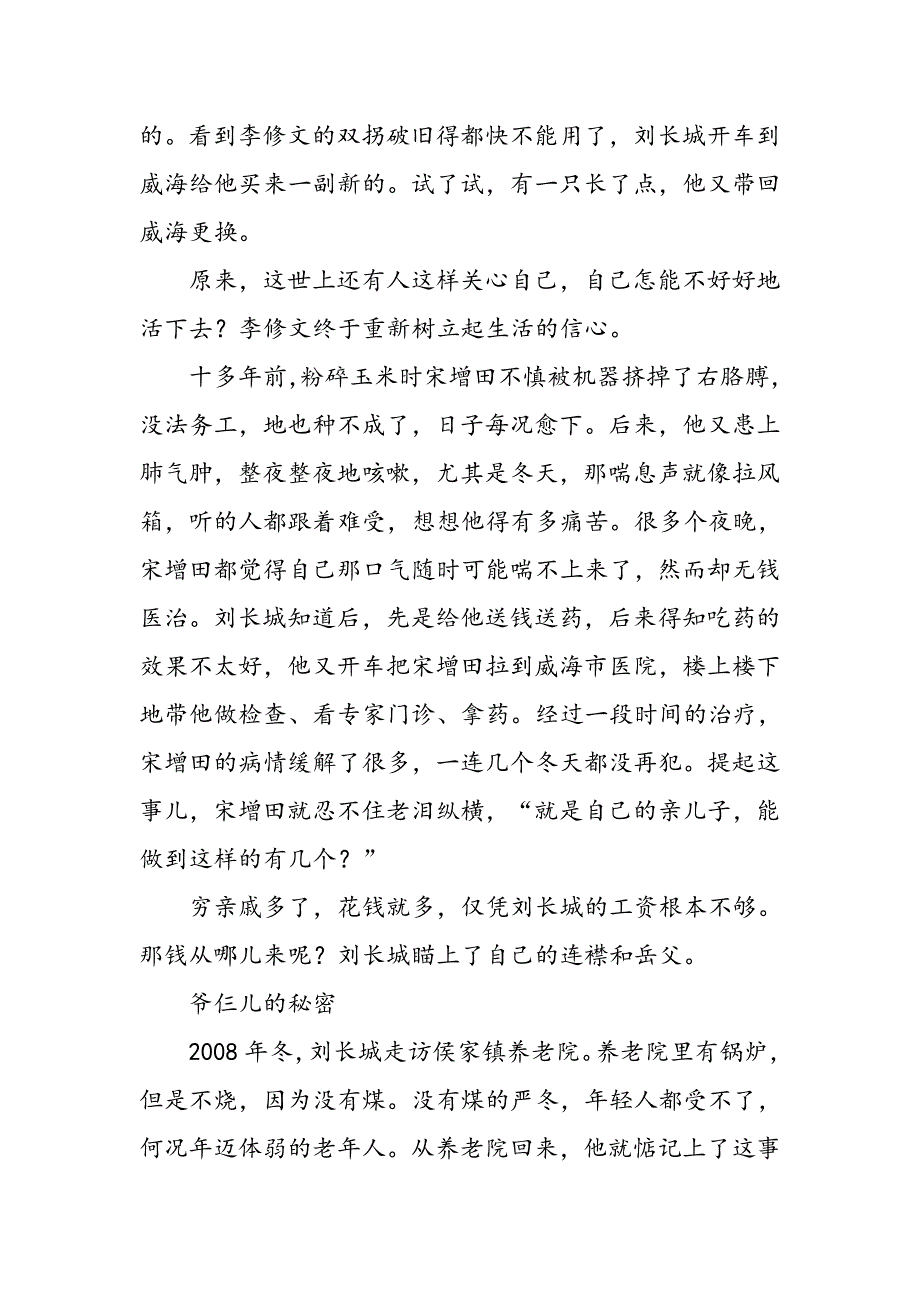 的。看到李修文的双拐破旧得都快不能用了，刘长城开车到
威海给他买来一副新的。试了试，有一只长了点，他又带回
威海更换。
原来，这世上还有人这样关心自己，自己怎能不好好地
活下去？李修文终于重新树立起生活的信心。
十多年前，粉碎玉米时宋增田不慎被机器挤掉了右胳膊，
没法务工，地也种不成了，日子每况愈下。后来，他又患上
肺气肿，整夜整夜地咳嗽，尤其是冬天，那喘息声就像拉风
箱，听的人都跟着难受，想想他得有多痛苦。很多个夜晚，
宋增田都觉得自己那口气随时可能喘不上来了，然而却无钱
医治。刘长城知道后，先是给他送钱送药，后来得知吃药的
效果不太好，他又开车把宋增田拉到威海市医院，楼上楼下
地带他做检查、看专家门诊、拿药。经过一段时间的治疗，
宋增田的病情缓解了很多，一连几个冬天都没再犯。提起这
事儿，宋增田就忍不住老泪纵横，“就是自己的亲儿子，能
做到这样的有几个？”
穷亲戚多了，花钱就多，仅凭刘长城的工资根本不够。
那钱从哪儿来呢？刘长城瞄上了自己的连襟和岳父。
爷仨儿的秘密
2008 年冬，刘长城走访侯家镇养老院。养老院里有锅炉，
但是不烧，因为没有煤。没有煤的严冬，年轻人都受不了，
何况年迈体弱的老年人。从养老院回来，他就惦记上了这事